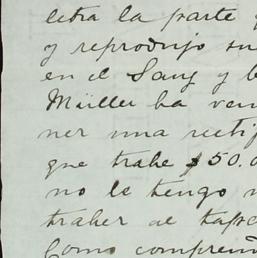 letra la parte
y reprodujo su
en el Sang y
Müller ha ven
ner una rectif
que trahe $50.0
no le tengo
traher al tapse
Como compren